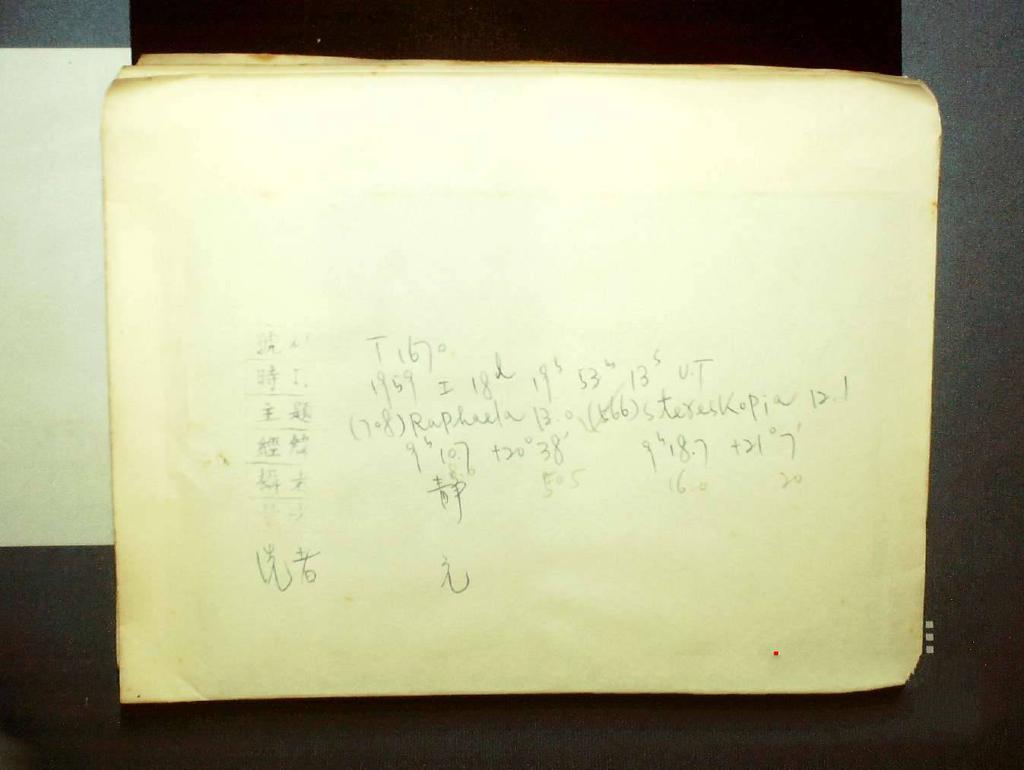 號
T 1670
時
1959 I 18d 19h 53m 13s U.T
主題
(708) Raphaela 13.0, (566) Stereskopia 12.1
經緯
9h 10.7 +20° 38' 9h 18.7 +21° 7'
8.6 50.5 16.0 20
攝者
靜
洗者
元